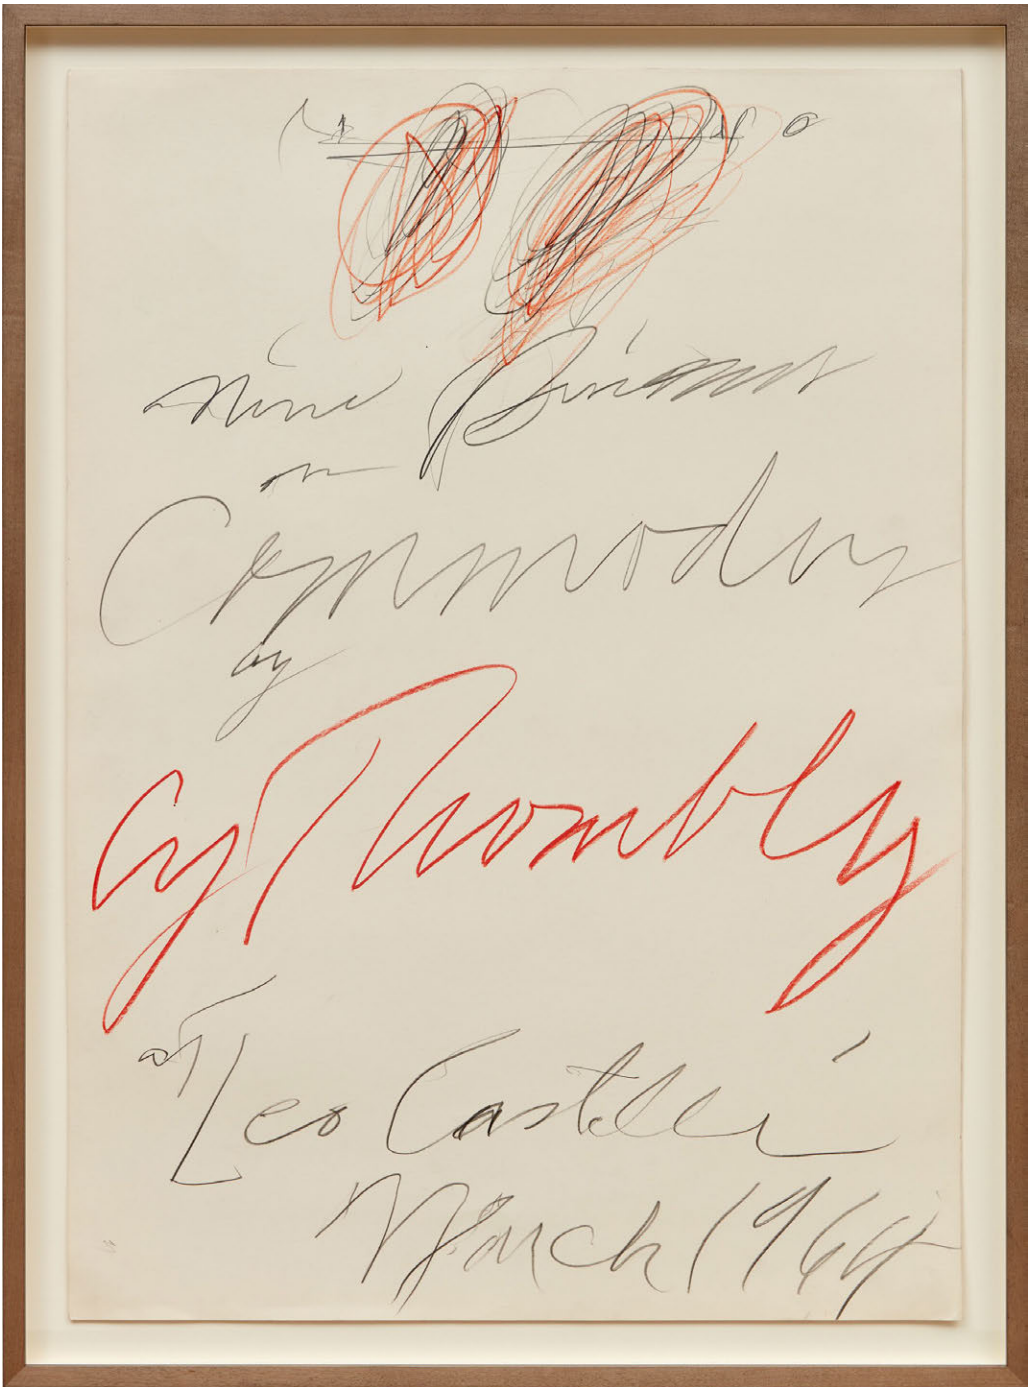 Nine Discourses
on
Commodus
by
Cy Twombly
at
Leo Castelli
March 1964